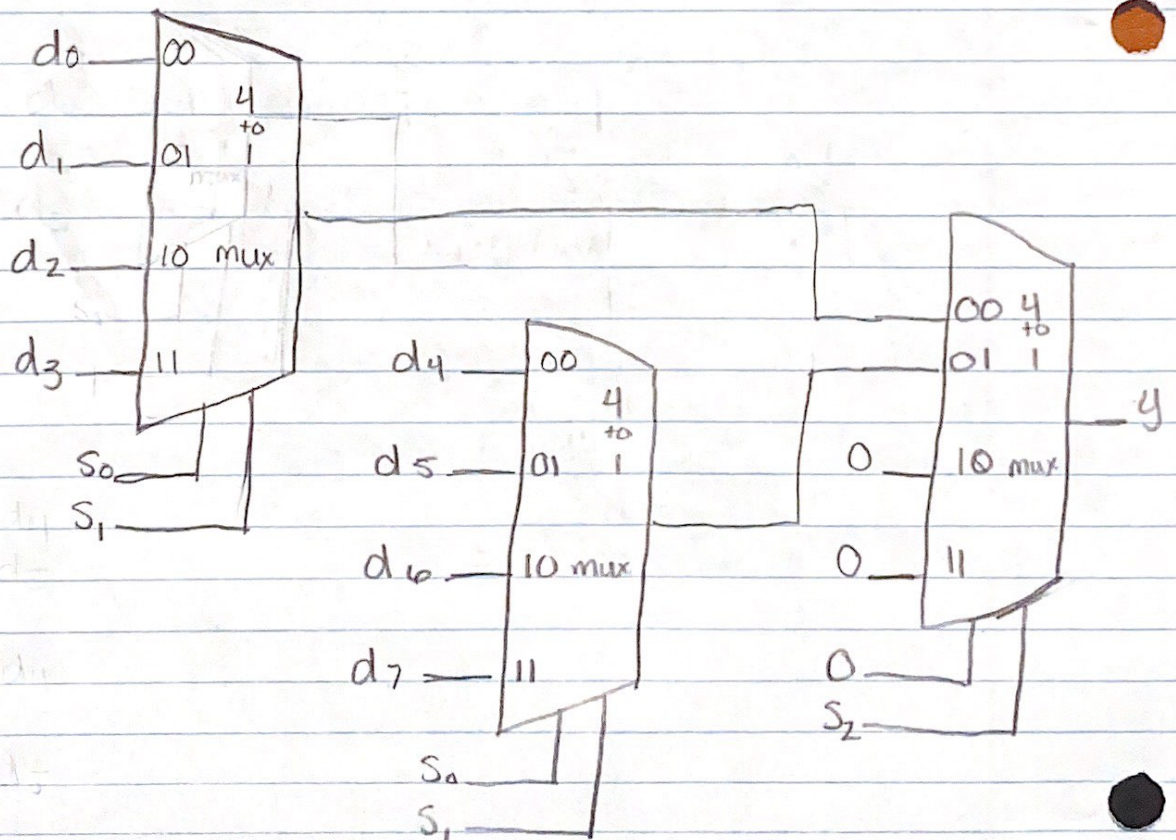 d0 00
4
to
d1 01 1
d2 10 mux
d3 11
S0
S1
d4 00
4
to
d5 01 1
d6 10 mux
d7 11
S0
S1
00 4
to
01 1
y
0 10 mux
0 11
0
S2